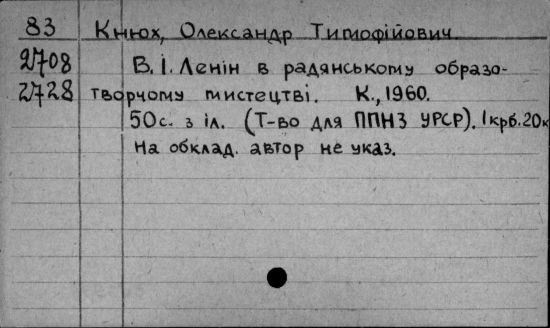 83 Кнюх, Олександр Тимофійович
2708 В. І. Ленін в радянському образо-
2728 творчому мистецтві. К., 1960.
50с. з іл. (Т-во для ППНЗ УРСР). 1крб.20к
На обклад. автор не указ.